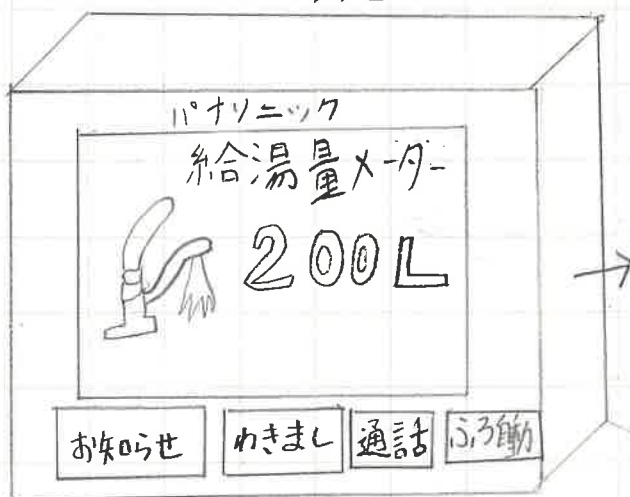 パナソニック
給湯量メーター
200L
お知らせ わきまし 通話 ふろ自動